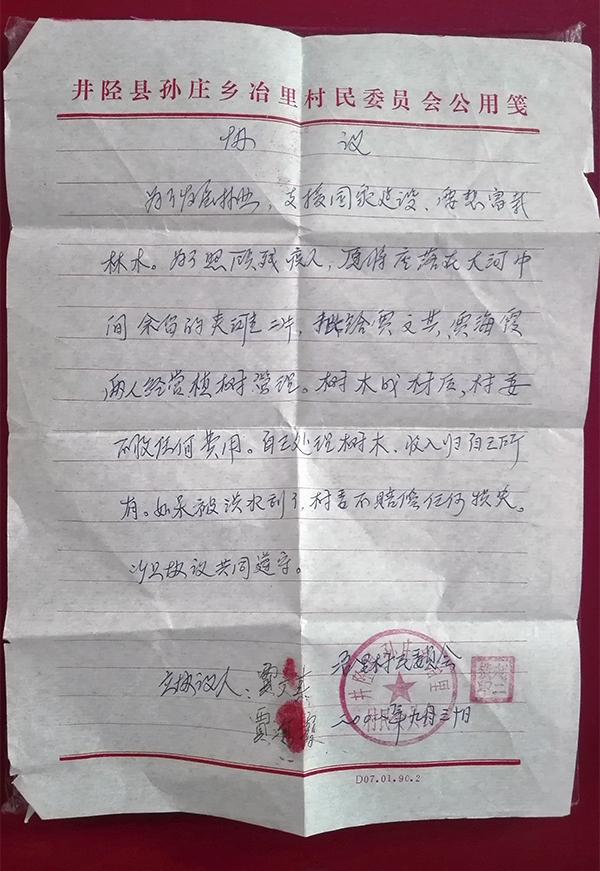 井陉县孙庄乡冶里村民委员会公用笺
协 议
为了发展林业，支援国家建设、要想富栽
林木。为了照顾残疾人，愿将座落在大河中
间余留的夹滩二片，批给贾文其、贾海霞
两人经营植树管理。树木成材后，村委
不收任何费用。自己处理树木、收入归自己所
有。如果被洪水刮了，村委不赔偿任何损失。
以上协议共同遵守。
冶里村民委员会
立协议人：贾文其
贾海霞 年九月三十日
D07.01.90.2